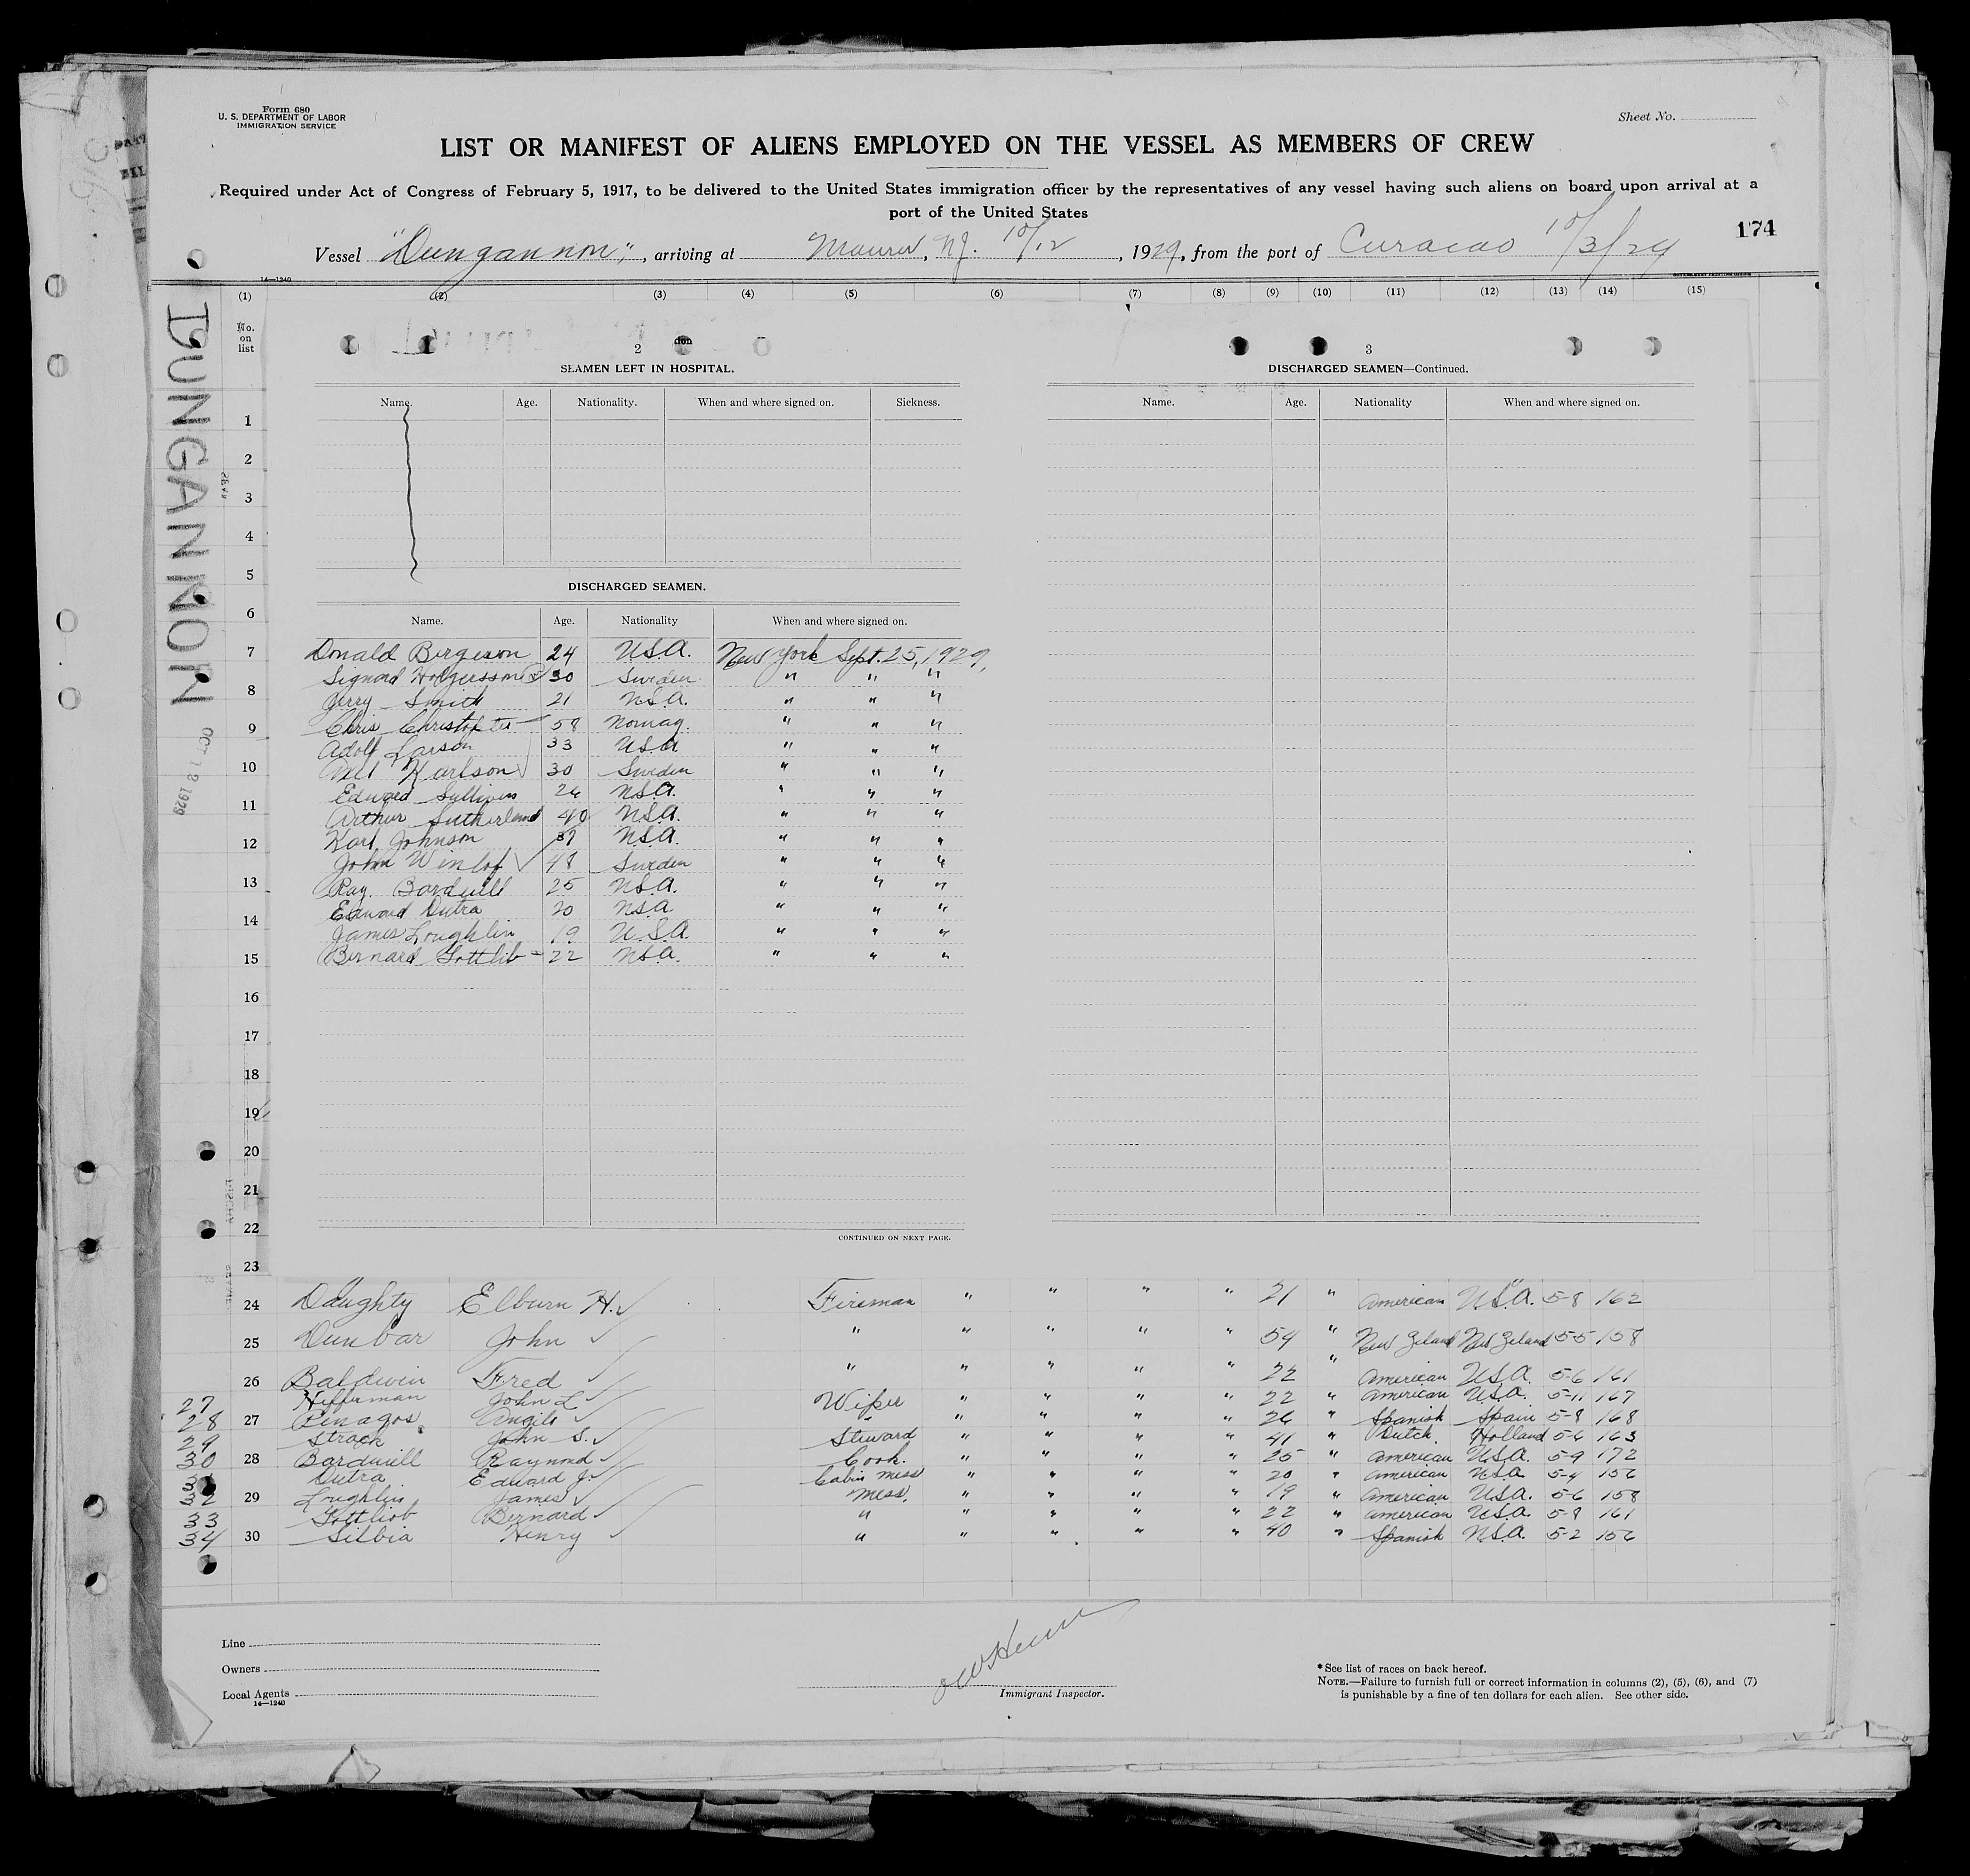 Form 680
U. S. DEPARTMENT OF LABOR
IMMIGRATION SERVICE
Sheet No.
LIST OR MANIFEST OF ALIENS EMPLOYED ON THE VESSEL AS MEMBERS OF CREW
Required under Act of Congress of February 5, 1917, to be delivered to the United States immigration officer by the representatives of any vessel having such aliens on board upon arrival at a
port of the United States
174
Vessel "Dungannon", arriving at Maurer, N.J. 10/12, 1929, from the port of Curacao 10/3/29
14—1240
GOVERNMENT PRINTING OFFICE
(1) (2) (3) (4) (5) (6) (7) (8) (9) (10) (11) (12) (13) (14) (15)
No. on list
DUNGANNON
OCT 12 1929
2
SEAMEN LEFT IN HOSPITAL.
Name. Age. Nationality. When and where signed on. Sickness.
3
DISCHARGED SEAMEN—Continued.
Name. Age. Nationality When and where signed on.
1
2
3
4
5
6
7
8
9
10
11
12
13
14
15
16
17
18
19
20
21
22
23
DISCHARGED SEAMEN.
Name. Age. Nationality When and where signed on.
Donald Bergeson 24 U.S.A. New York Sept. 25, 1929,
Signard Holgersson 30 Sweden " " "
Jerry Smith 21 U.S.A. " " "
Chris Christofter 58 Norway. " " "
Adolf Larson 33 U.S.A " " "
Axel Karlson 30 Sweden " " "
Edward Sullivan 26 U.S.A. " " "
Arthur Sutherland 40 U.S.A. " " "
Karl Johnson 39 U.S.A. " " "
John Winlof 48 Sweden " " "
Ray. Bardwell 25 U.S.A. " " "
Edward Dutra 20 U.S.A " " "
James Loughlin 19 U.S.A. " " "
Bernard Gottlib 22 U.S.A. " " "
CONTINUED ON NEXT PAGE.
24 Doughty Elburn H. Fireman " " " " 21 " American U.S.A. 5-8 162
25 Dunbar John " " " " " 54 " New Zeland New Zeland 5-5 158
26 Baldwin Fred " " " " " 22 " American U.S.A. 5-6 161
27 Heffernan John L Wiper " " " " 22 " American U.S.A. 5-11 167
28 27 Penagos Angelo " " " " " 26 " Spanish Spain 5-8 168
29 Strack John S. Steward " " " " 41 " Dutch Holland 5-6 163
30 28 Bardwell Raymond Cook. " " " " 25 " American U.S.A. 5-9 172
31 Dutra Edward J. Cabin mess " " " " 20 " American U.S.A 5-4 156
32 29 Loughlin James Mess. " " " " 19 " American U.S.A. 5-6 158
33 Gottliob Bernard " " " " " 22 " American U.S.A. 5-8 161
34 30 Silbia Henry " " " " " 40 " Spanish U.S.A. 5-2 156
Line
Owners
Local Agents
14—1240
Immigrant Inspector.
*See list of races on back hereof.
NOTE.—Failure to furnish full or correct information in columns (2), (5), (6), and (7)
is punishable by a fine of ten dollars for each alien. See other side.